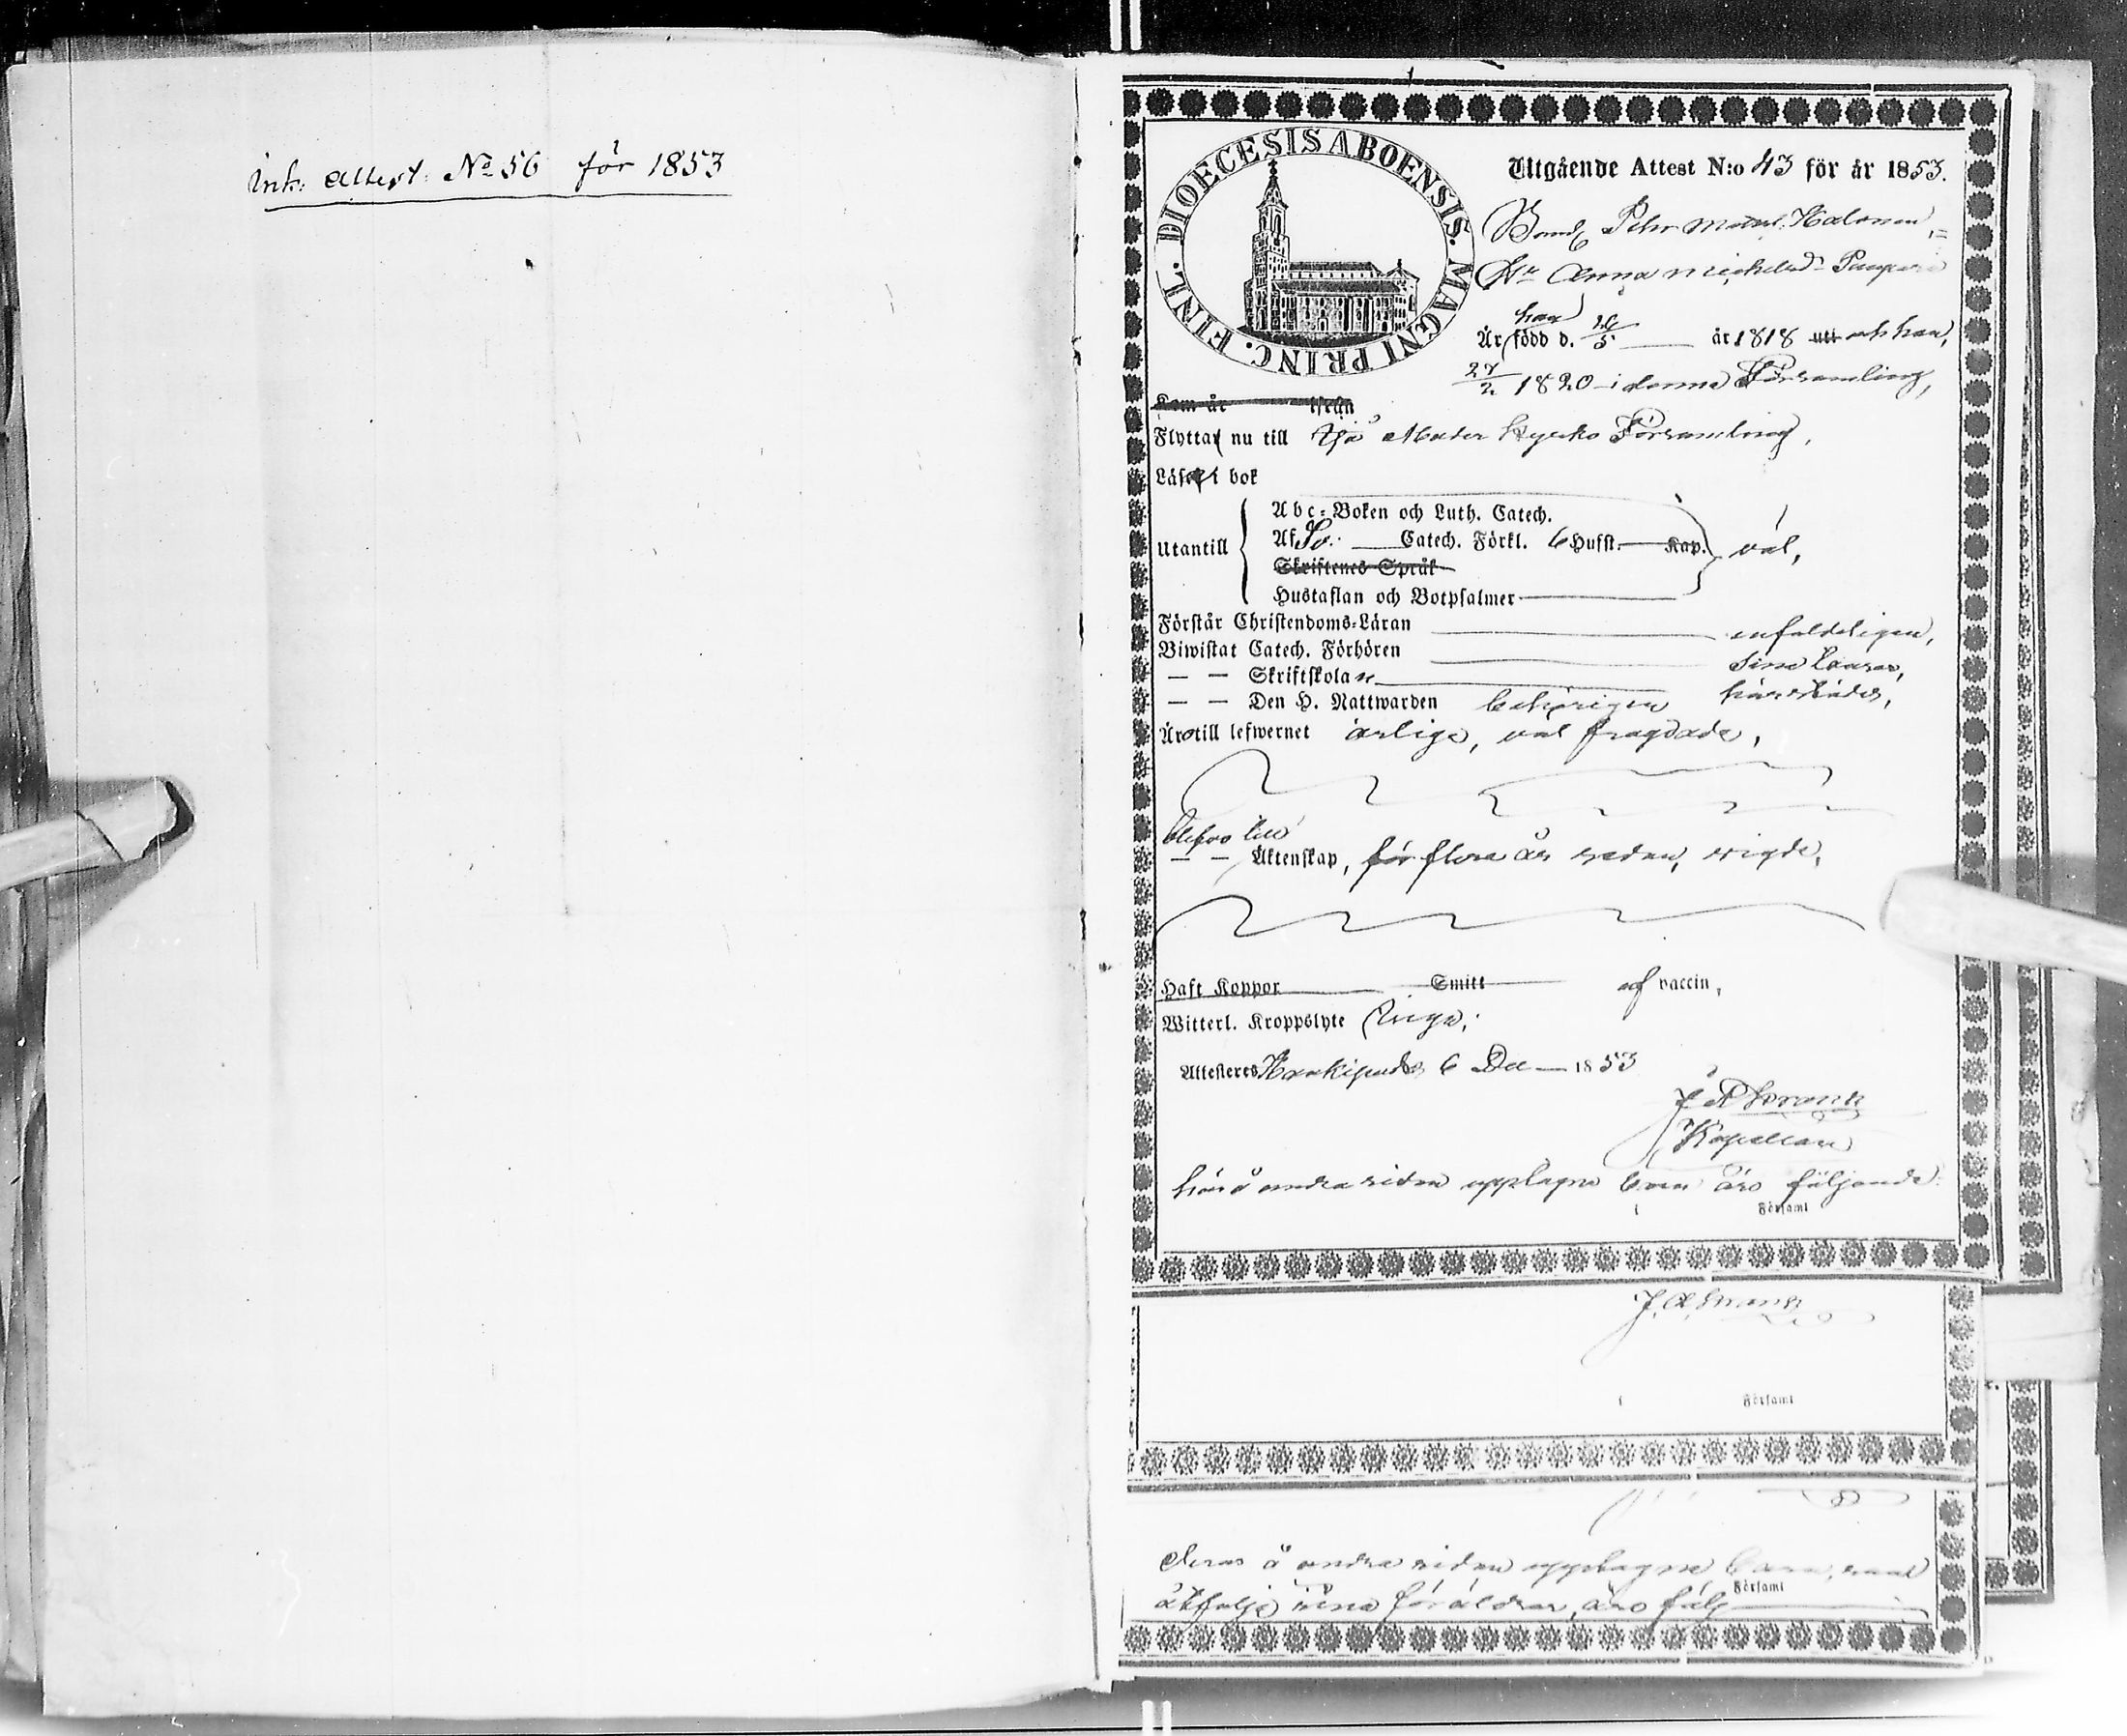 Ink: Attest: No 56 för 1853
DIOECESIS ABOENSIS. MAGNI PRINC. FINL.
Utgående Attest N:o 43 för år 1853.
Bond. Pehr Matts. Kalonen,
Hu Anna Michelsd:r
han
Är född d. 26/5 år 1818 uti och hon,
27/2 1820 i denna Församling,
Kom år ifrån
Flytta nu till Moder Kyrko Församling,
Läs i bok
Abc-Boken och Luth. Catech.
Utantill Af Sv. Catech. Förkl. 6 Hufst. Kap. väl,
Skriftenes Språk
Hustaflan och Botpsalmer
Förstår Christendoms-Läran enfaldeligen,
Biwistat Catech. Förhören sine Läsrar,
— — Skriftskolan
— — Den H. Nattwarden behörigen härstädes,
Äro till lefwernet ärliga, väl frägdade,
Äktenskap, för flera år sedan, wigde,
Haft Koppor Smitt af vaccin,
Witterl. Kroppslyte Inga.
Attesteres 6 Dec 1853
Kapellan
här å andra sidan upptagne barn äro följande:
i Församl
i Församl
Deras å andra sidan upptagne barn, samt
Församl
åtfölja sina föräldrar, äro följ